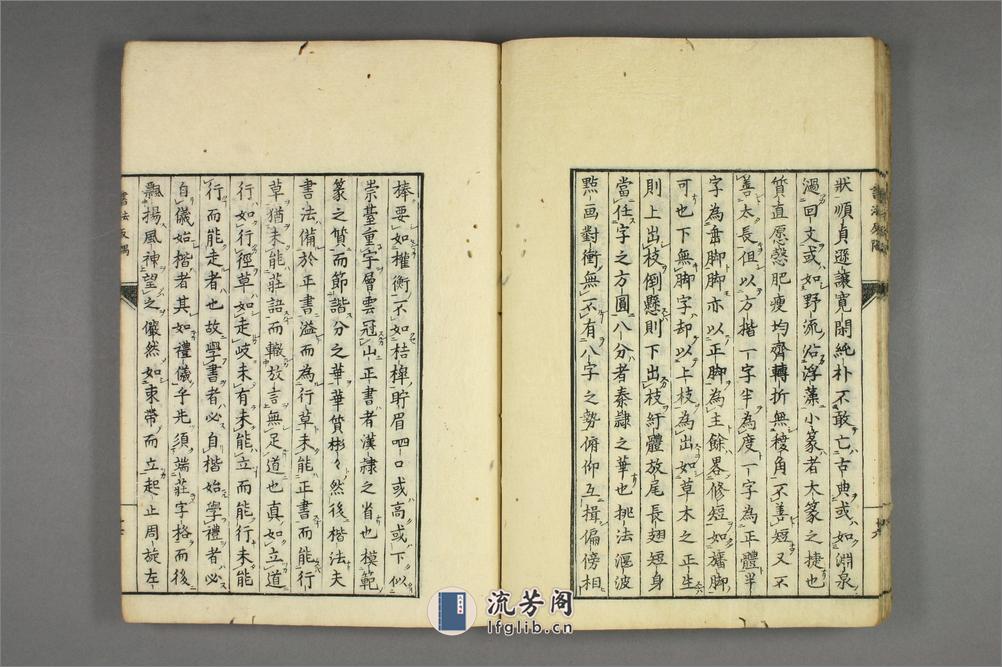 狀順貞遜讓寬閑純朴不敢亡古典或如淵泉
過回文或如野流沿浮藻小篆者太篆之捷也
質直愿愨肥瘦均齊轉折無稜角不善短又不
善太長但以方楷一字半為度一字為正體半
字為垂脚脚亦以正脚為主餘畧修短如旛脚
可也下無脚字却以上枝為出如草木之正生
則上出枝倒懸則下出枝紆體放尾長翅短身
當任字之方圓八分者秦隷之華也挑法漚波
點画對衝無不有八字之勢俯仰互揖偏傍相
捧要如權衡不如桔橰貯眉呬口或高或下似
崇臺重字層雲冠山正書者漢隷之省也模範
篆之質而節諧分之華華質彬彬然後楷法夫
書法備於正書溢而為行草未能正書而能行
草猶未能莊語而輙放言無足道也真如立道
行如行徑草如走歧未有未能立而能行未能
行而能走者也故學書者必自楷始學禮者必
自儀始楷者其如禮儀乎先須端莊字格而後
飄揚風神望之儼然如束帶而立起止周旋左
書法
流芳阁
lfglib.cn